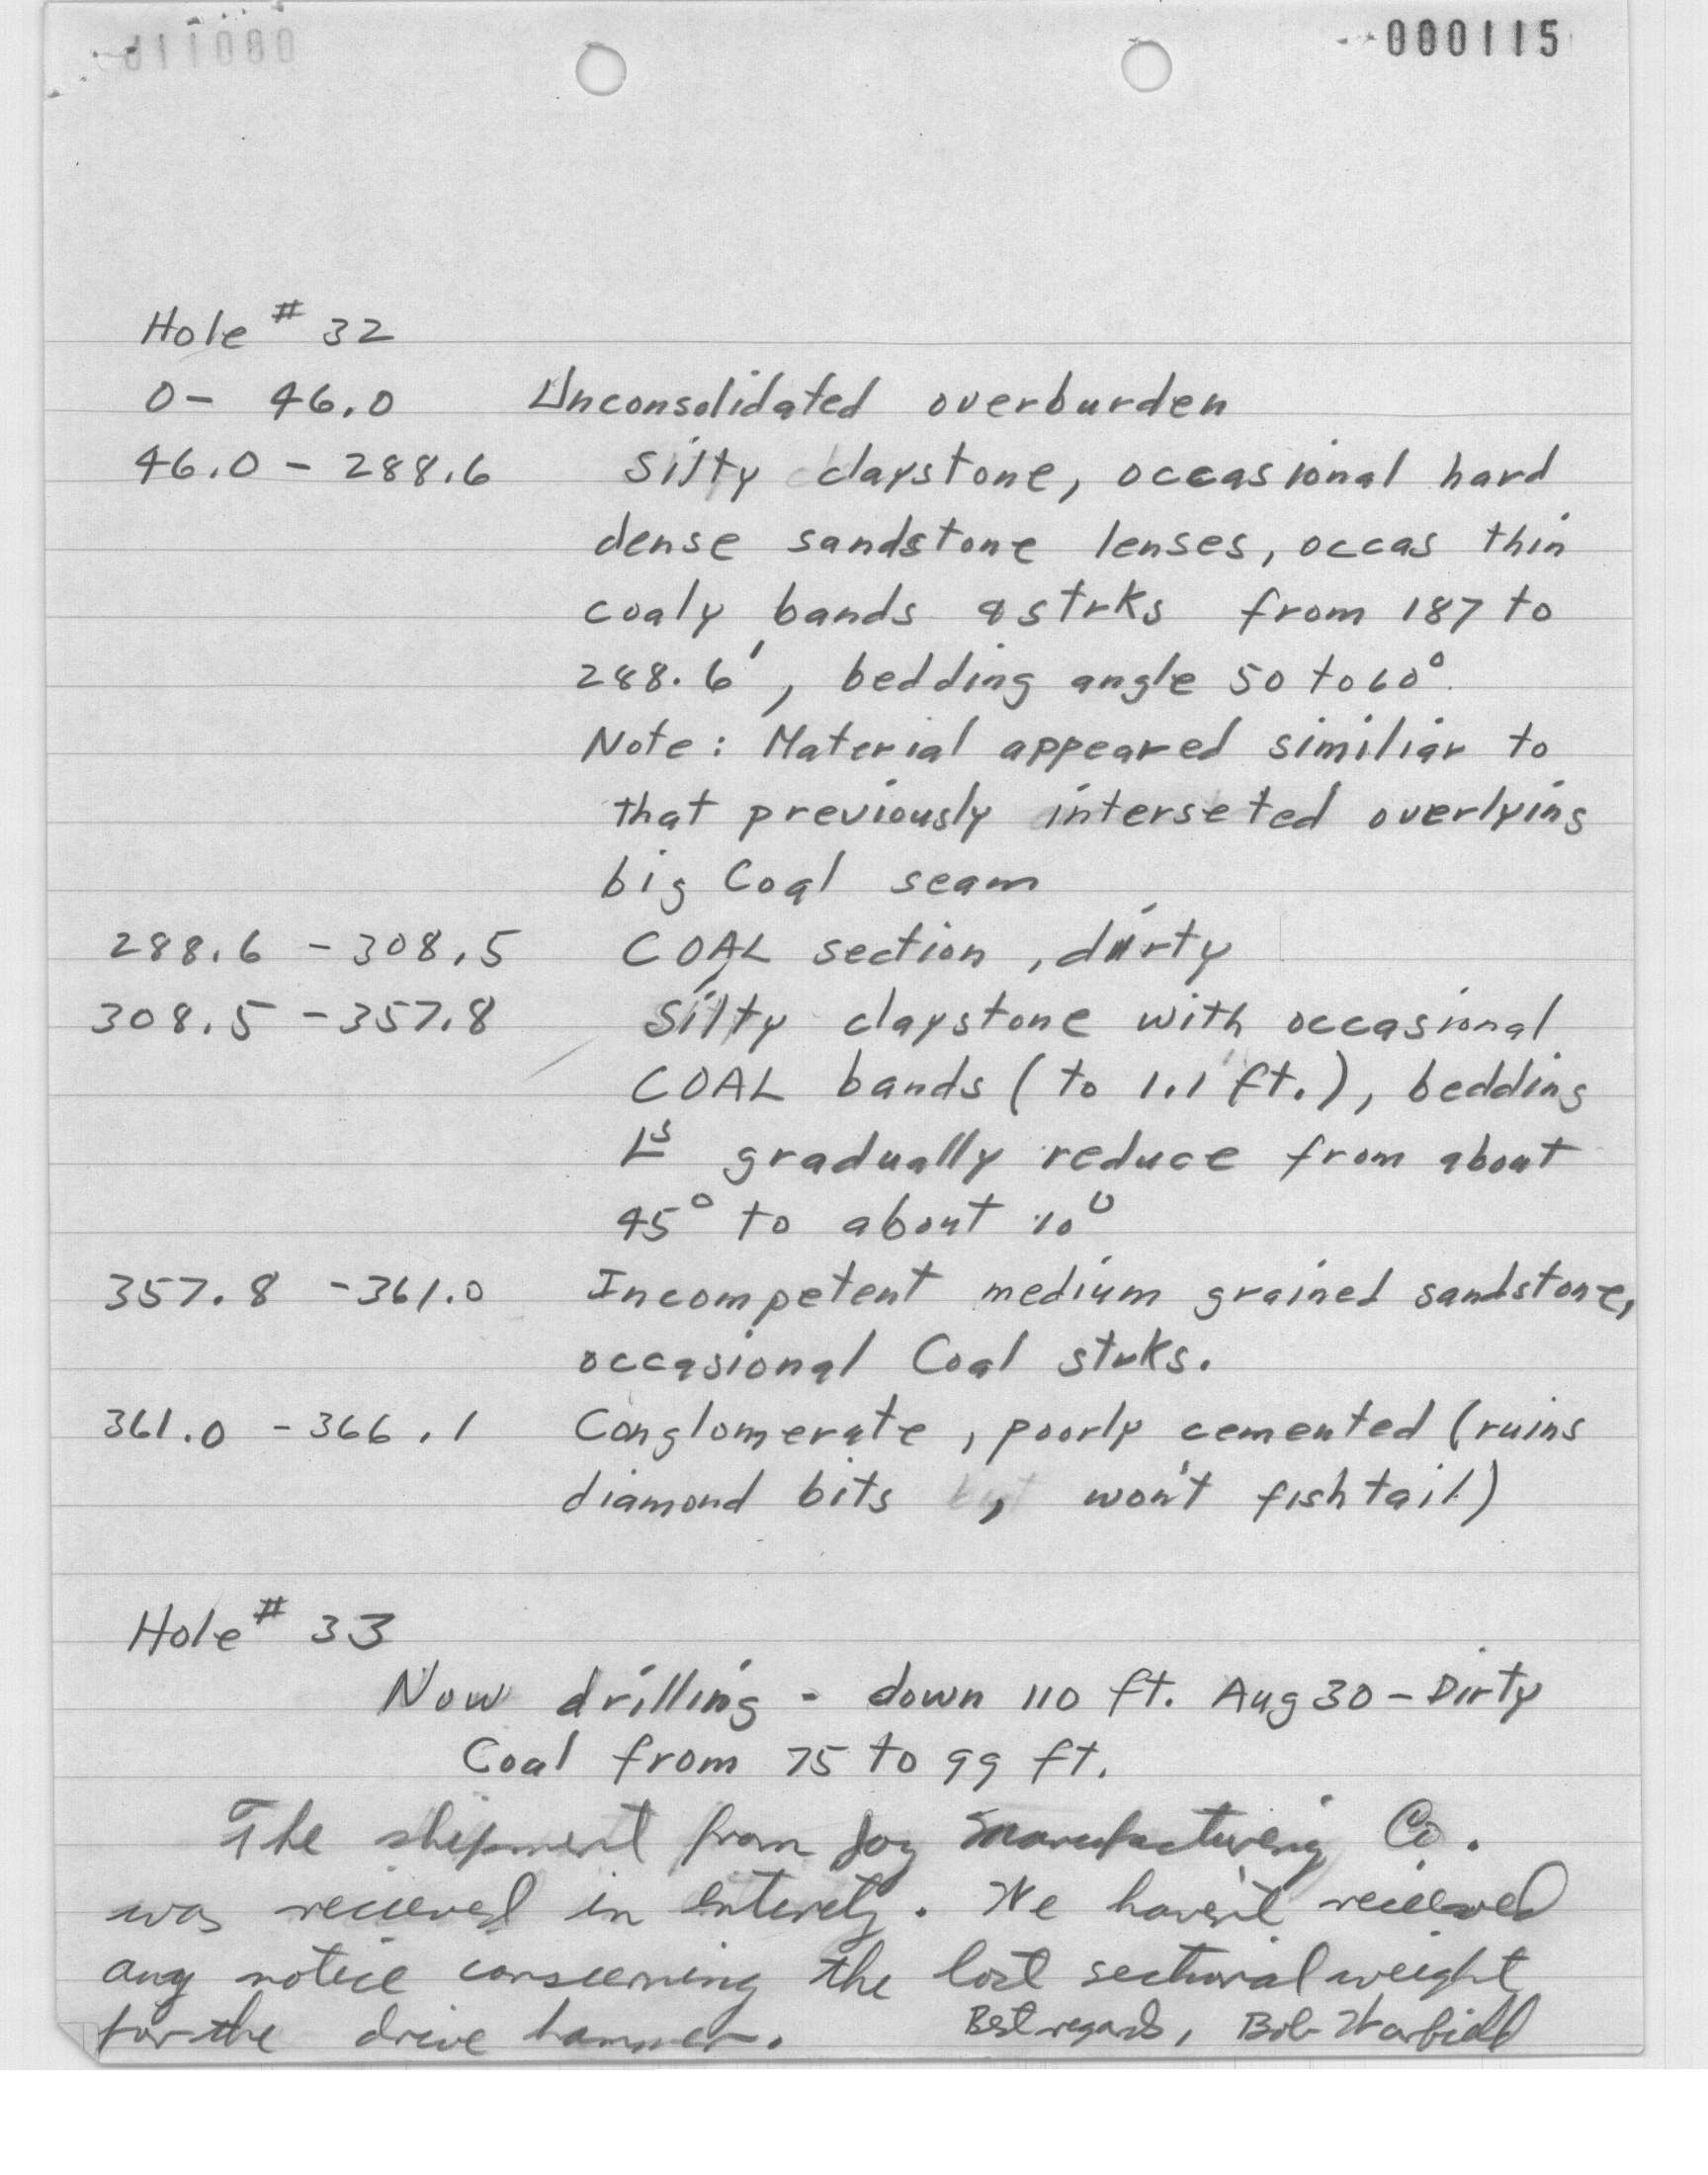 000115
Hole # 32
0 - 46.0 Unconsolidated overburden
46.0 - 288.6 Silty claystone, occasional hard
dense sandstone lenses, occas thin
coaly bands & strks from 187 to
288.6', bedding angle 50 to 60°.
Note: Material appeared similiar to
that previously interseted overlying
big Coal seam
288.6 - 308.5 COAL section, dirty
308.5 - 357.8 Silty claystone with occasional
COAL bands (to 1.1 ft.), bedding
∠s gradually reduce from about
45° to about 10°
357.8 - 361.0 Incompetent medium grained sandstone,
occasional Coal strks.
361.0 - 366.1 Conglomerate, poorly cemented (ruins
diamond bits, won't fishtail)
Hole # 33
Now drilling - down 110 ft. Aug 30 - Dirty
Coal from 75 to 99 ft.
The shipment from Joy Manufacturing Co.
was recieved in entirety. We haven't recieved
any notice conscerning the lost sectional weight
for the drive hammer. Best regards, Bob Warfield